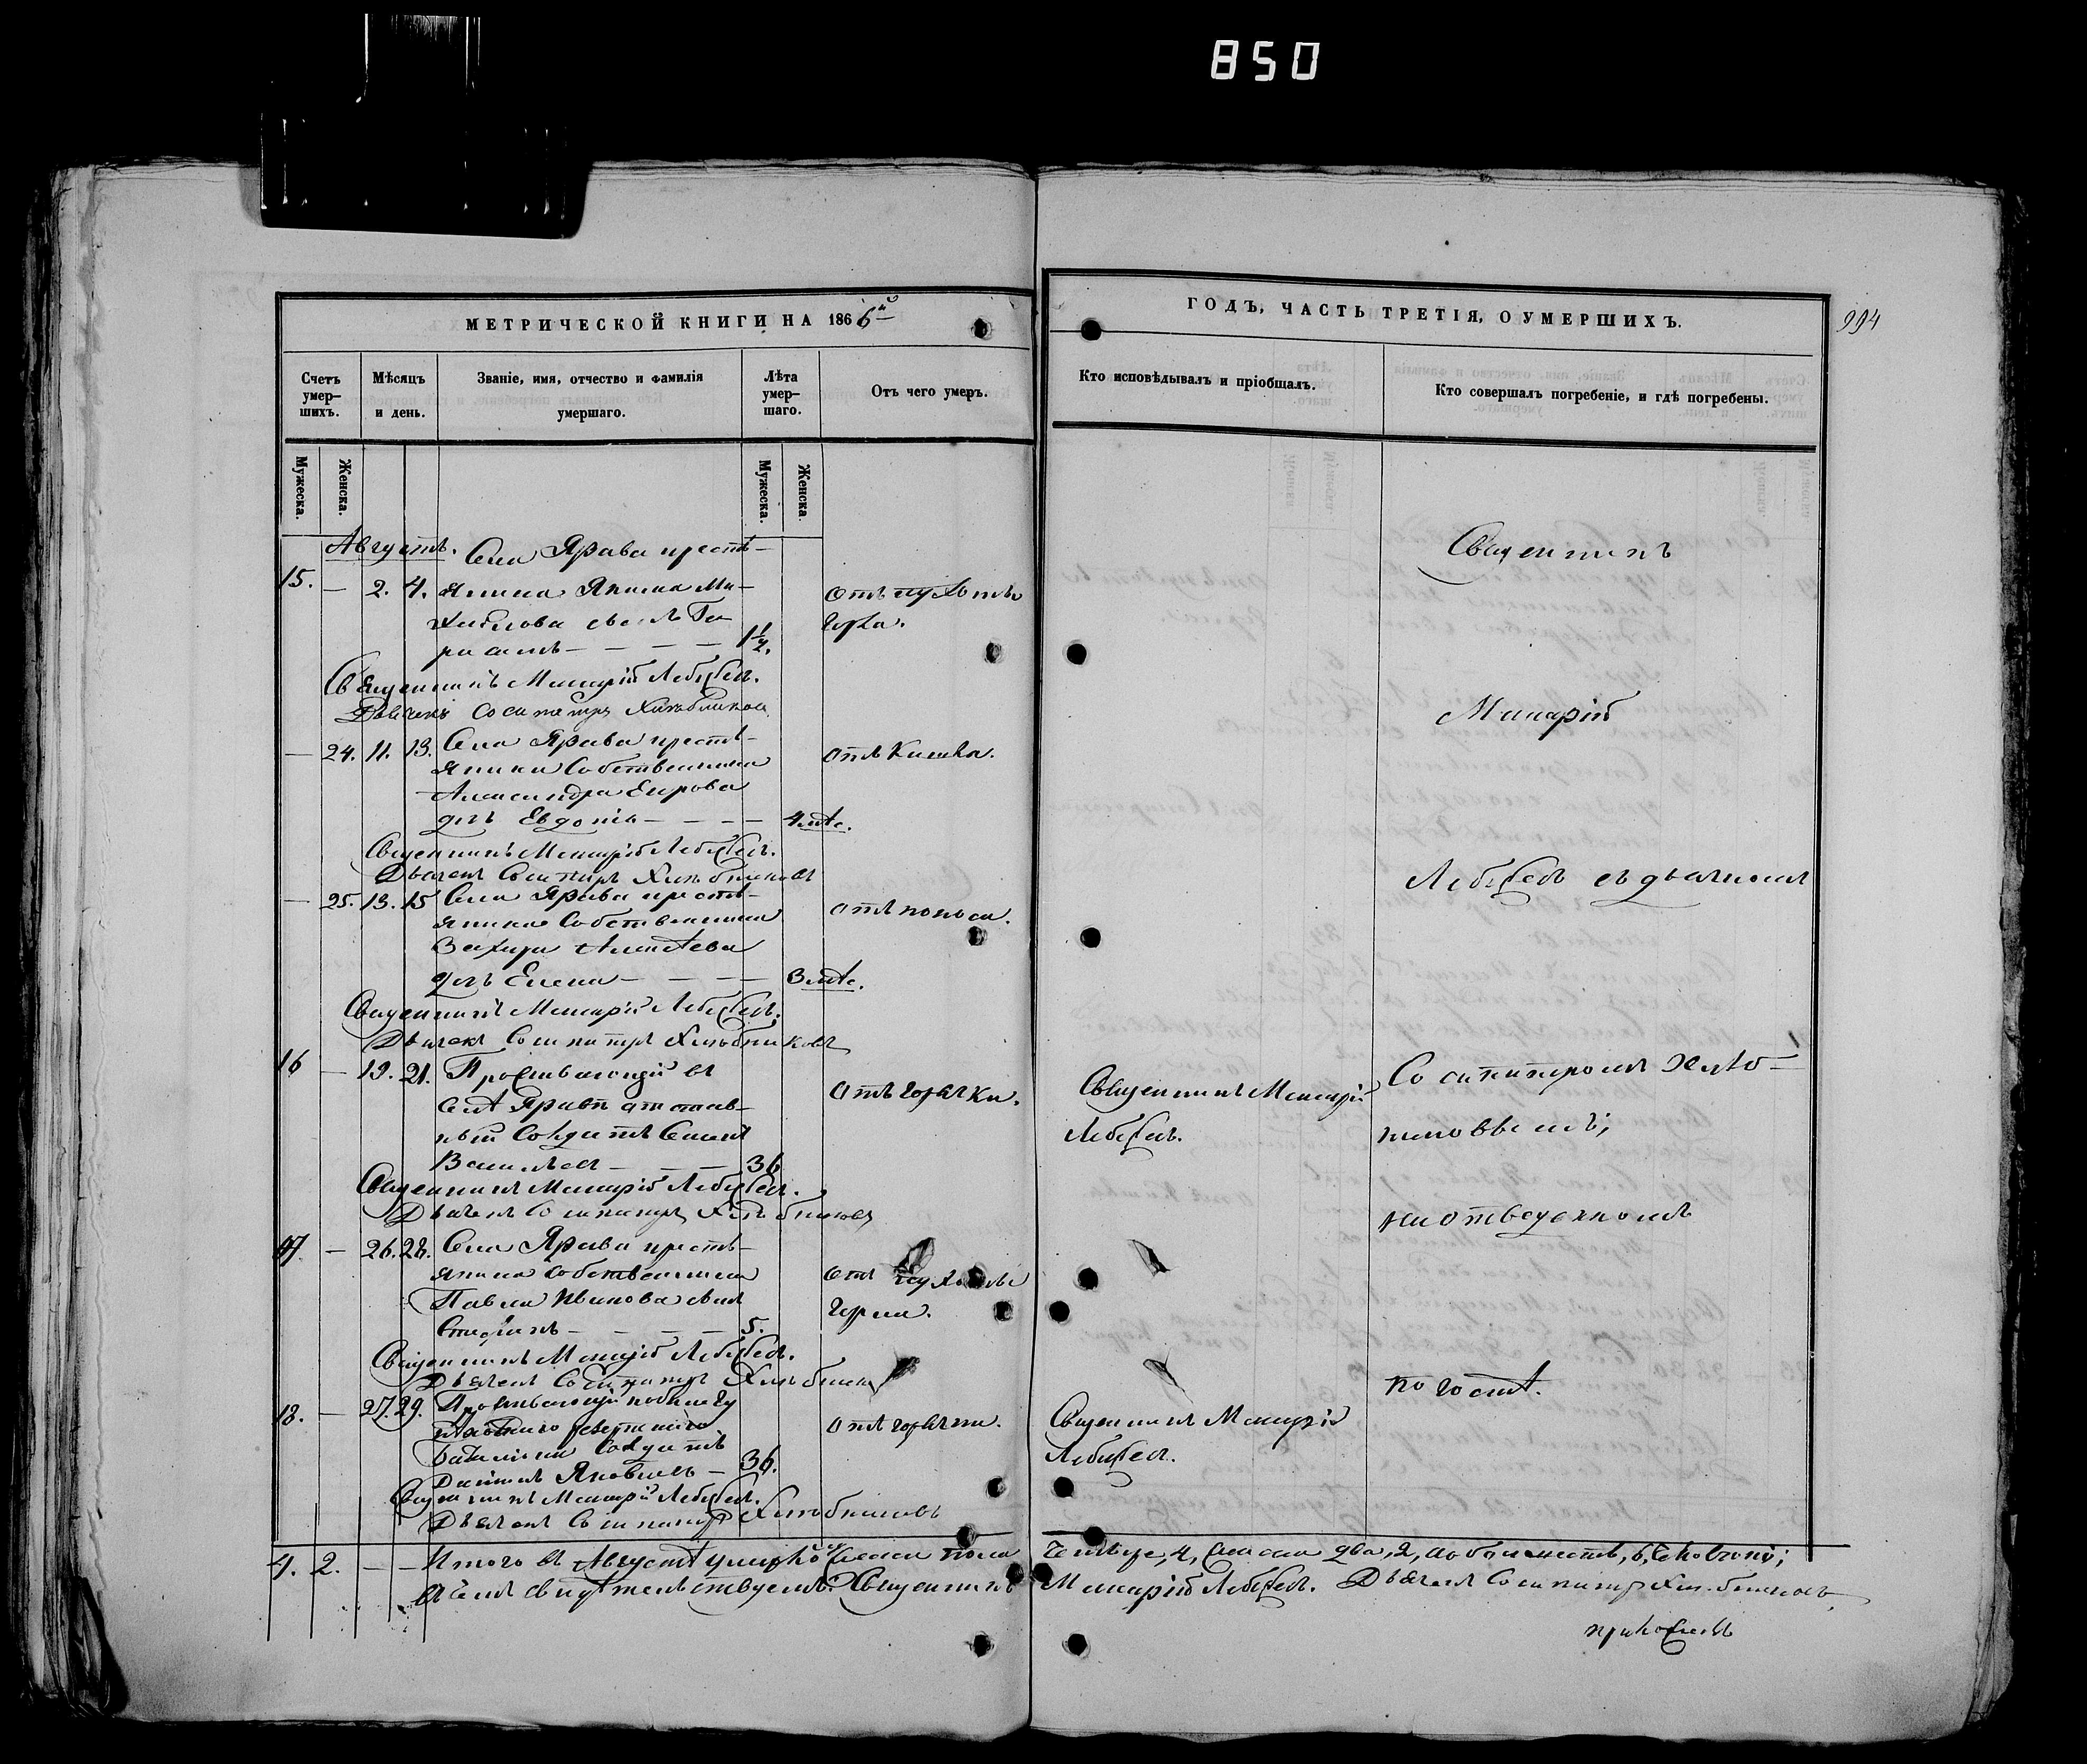 850
МЕТРИЧЕСКОЙ КНИГИ НА 1866й
ГОДЪ, ЧАСТЬ ТРЕТІЯ, О УМЕРШИХЪ.
994
Счетъ умер-
шихъ.
Мѣсяцъ
и день.
Званіе, имя, отчество и фамилія
умершаго.
Лѣта
умер-
шаго.
Отъ чего умеръ.
Кто исповѣдывалъ и пріобщалъ.
Кто совершалъ погребеніе, и гдѣ погребены.
Мужеска.
Женска.
Мужеска.
Женска.
Августъ. Села Ярава кресть-
15. — 2. 4. янина
хайлова сынъ Ге-
расимъ — — — — 1½.
Священникъ Макарій Лебедевъ.
Дьячекъ Сосипатръ Хлѣбников
— 24. 11. 13. Села Ярава кресть-
янина Собственника
Александра Егорова
дочь Евдокія — — — 4 мѣс.
Отъ Кашля.
Священникъ Макарій Лебедевъ.
Дьячекъ Сосипатръ Хлѣбниковъ
— 25. 13. 15 Села Ярава кресть-
янина Собственника
Захара Алексѣева
дочь Елена — — — — 3 мѣс.
отъ поноса.
Священникъ Макарій Лебедевъ.
Дьячекъ Сосипатръ Хлѣбниковъ
16 — 19. 21. Проживающій въ
селѣ Яравѣ отстав-
ный Солдатъ Семенъ
Васильевъ — — — 36
Отъ горячки.
Священникъ Макарій
Лебедевъ.
Священникъ Макарій Лебедевъ.
Дьячекъ Сосипатръ Хлѣбниковъ
17 — 26. 28. Села Ярава кресть-
янина собственника
Павла Иванова сынъ
Стефанъ — — — — 5.
Священникъ Макарій Лебедевъ.
Дьячекъ Сосипатръ Хлѣбник
18. — 27. 29. Проживающій по билету
резервнаго
баталіона Солдатъ
Яковлевъ — 36.
отъ горячки.
Священникъ Макарій
Лебедевъ.
Священникъ Макарій Лебедевъ.
Дьячекъ Сосипатръ Хлѣбниковъ
Священникъ
Макарій
Лебедевъ съ дьячкомъ
Сосипатромъ Хлѣб-
никовымъ;
на отведенномъ
погостѣ.
4. 2. — — Итого въ Августѣ умерло мужеска пола четыре, 4, женска два, 2, а обоего шесть, 6, человѣкъ;
въ чемъ свидѣтельствуемъ: Священникъ Макарій Лебедевъ. Дьячекъ Сосипатръ Хлѣбниковъ